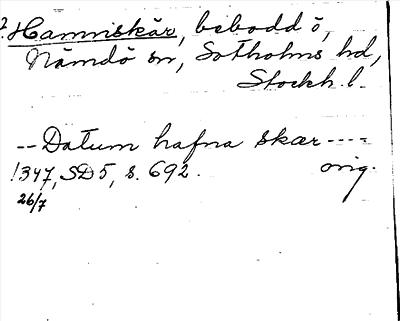 ?Hamniskär, bebodd ö,
Nämdö sn, Sotholms hd,
Stockh. l.
--Datum hafna skær ----
1347, SD 5, s. 692. orig.
26/7